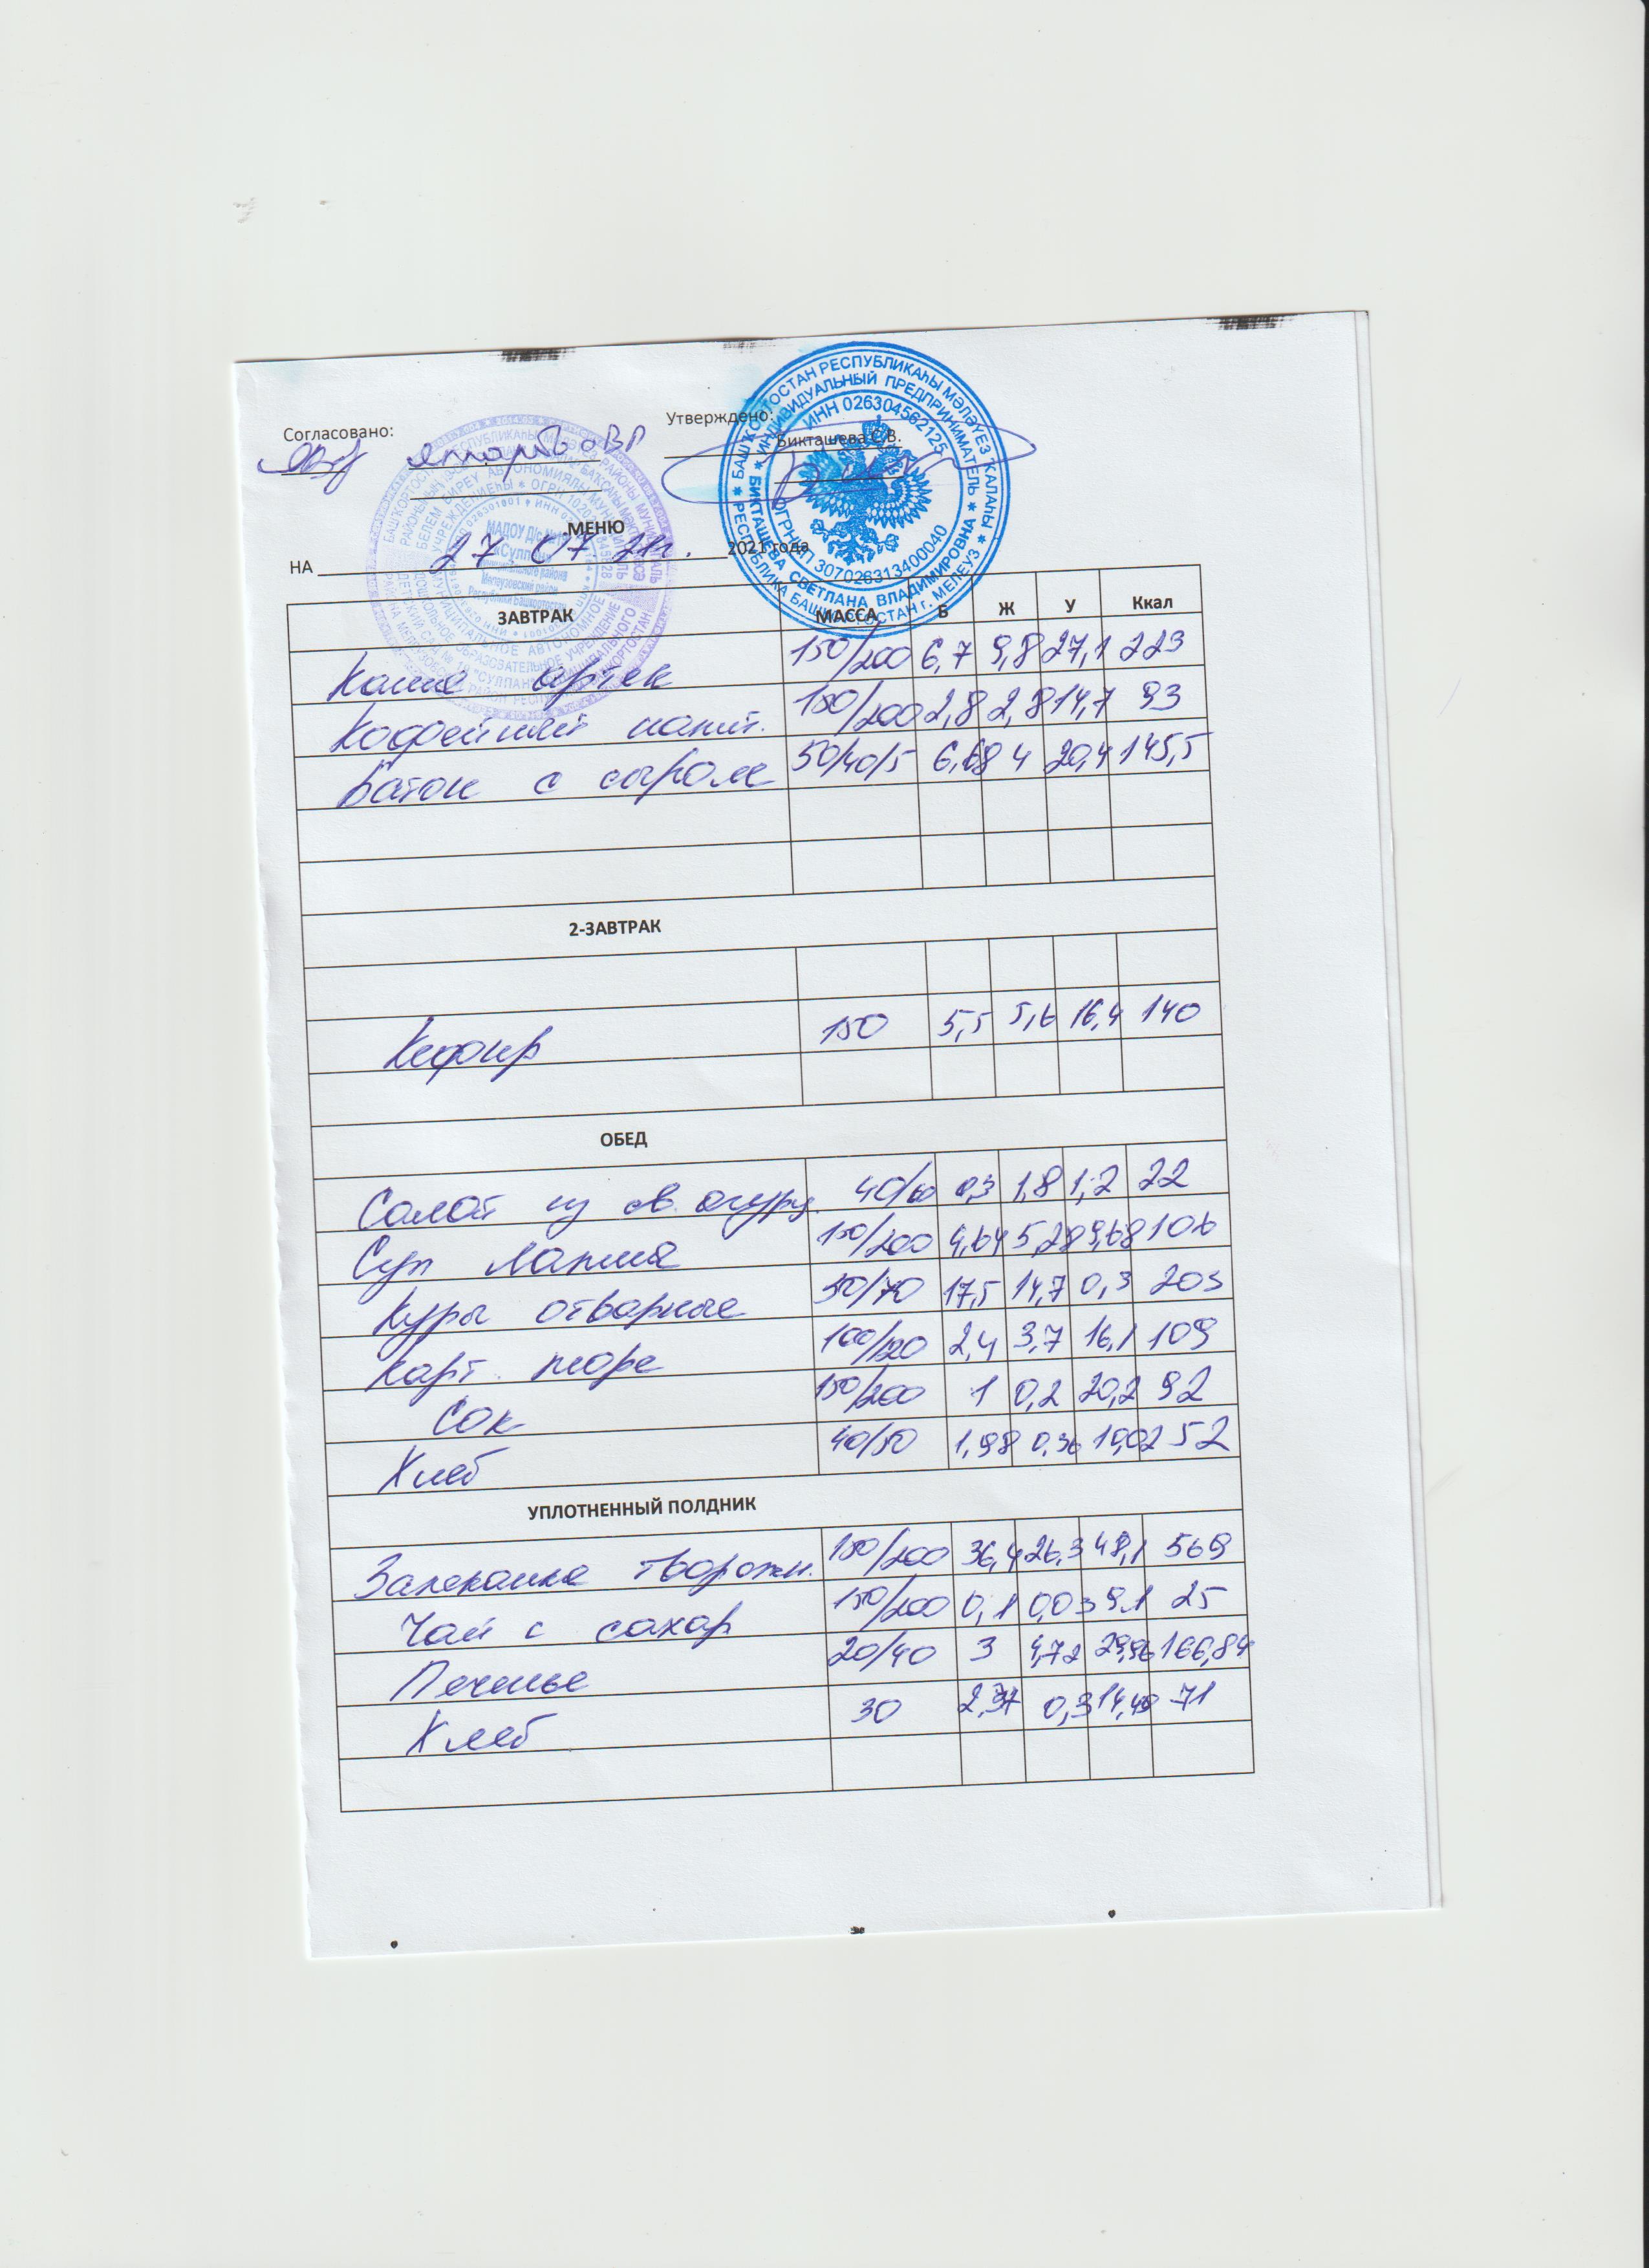 Согласовано:
Утверждено:
Бикташева С.В.
МЕНЮ
НА 27 07 21г. 2021 года
ЗАВТРАК МАССА Б Ж У Ккал
Каша артек 150/200 6,7 9,8 27,1 223
Кофейный напит. 150/200 2,8 2,8 14,7 93
Батон с сыром 50/40/5 6,68 4 20,4 145,5
2-ЗАВТРАК
Кефир 150 5,5 5,6 16,4 140
ОБЕД
Салат из св. огурц. 40/60 0,3 1,8 1,2 22
Суп лапша 150/200 4,64 5,28 9,68 106
Куры отварные 50/70 17,5 14,7 0,3 203
Карт. пюре 100/120 2,4 3,7 16,1 109
Сок 150/200 1 0,2 20,2 92
Хлеб 40/50 1,98 0,36 10,02 52
УПЛОТНЕННЫЙ ПОЛДНИК
Запеканка творожн. 150/200 36,4 26,3 48,1 569
Чай с сахар 150/200 0,1 0,03 9,1 25
Печенье 20/40 3 4,72 29,96 166,84
Хлеб 30 2,37 0,3 14,49 71
БАШҠОРТОСТАН РЕСПУБЛИКАҺЫ МӘЛӘҮЕЗ ҠАЛАҺЫ
РЕСПУБЛИКА БАШКОРТОСТАН г. МЕЛЕУЗ
ИНДИВИДУАЛЬНЫЙ ПРЕДПРИНИМАТЕЛЬ
БИКТАШЕВА СВЕТЛАНА ВЛАДИМИРОВНА
ИНН 026304562125
ОГРНИП 307026313400040